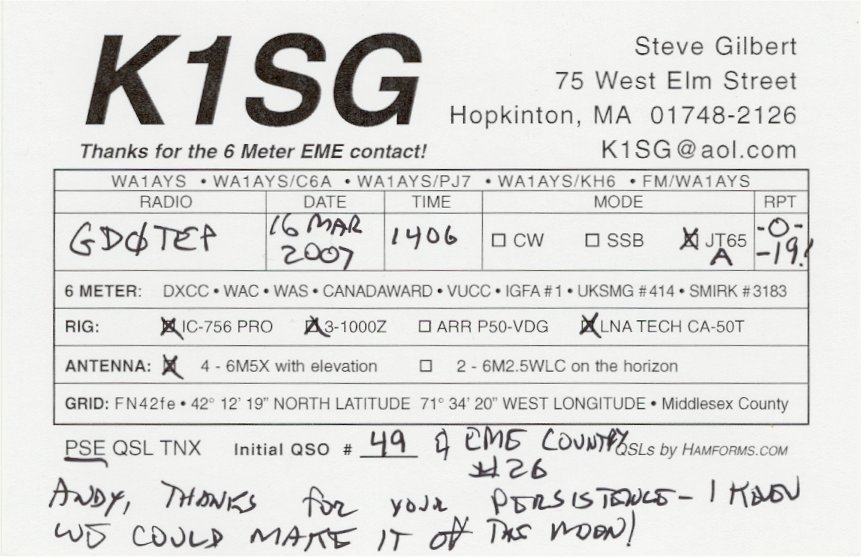 K1SG
Steve Gilbert
75 West Elm Street
Hopkinton, MA 01748-2126
Thanks for the 6 Meter EME contact!
K1SG@aol.com
WA1AYS • WA1AYS/C6A • WA1AYS/PJ7 • WA1AYS/KH6 • FM/WA1AYS
RADIO DATE TIME MODE RPT
GDØTEP 16 MAR 2007 1406 ☐ CW ☐ SSB ☒ JT65 A -O- -19!
6 METER: DXCC • WAC • WAS • CANADAWARD • VUCC • IGFA #1 • UKSMG #414 • SMIRK #3183
RIG: ☒ IC-756 PRO ☒ 3-1000Z ☐ ARR P50-VDG ☒ LNA TECH CA-50T
ANTENNA: ☒ 4 - 6M5X with elevation ☐ 2 - 6M2.5WLC on the horizon
GRID: FN42fe • 42° 12' 19" NORTH LATITUDE 71° 34' 20" WEST LONGITUDE • Middlesex County
PSE QSL TNX Initial QSO # 49 & EME COUNTRY QSLs by HAMFORMS.COM
#26
ANDY, THANKS for YOUR PERSISTENCE - I KNEW
WE COULD MAKE IT off THE MOON!